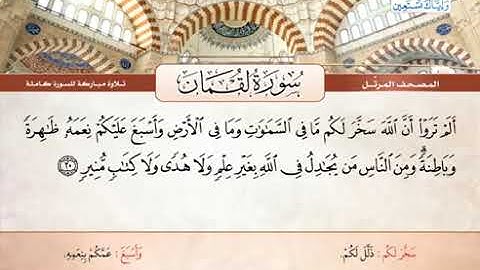 وَإِيَّاكَ نَسْتَعِينُ
المصحف المرتّل
سُورَةُ لُقْمَانَ
تلاوة مباركة للسورة كاملة
أَلَمْ تَرَوْا۟ أَنَّ ٱللَّهَ سَخَّرَ لَكُم مَّا فِى ٱلسَّمَٰوَٰتِ وَمَا فِى ٱلْأَرْضِ وَأَسْبَغَ عَلَيْكُمْ نِعَمَهُۥ ظَٰهِرَةً
وَبَاطِنَةً ۗ وَمِنَ ٱلنَّاسِ مَن يُجَٰدِلُ فِى ٱللَّهِ بِغَيْرِ عِلْمٍ وَلَا هُدًى وَلَا كِتَٰبٍ مُّنِيرٍ ٢٠
سَخَّرَ لَكُم : ذَلَّلَ لَكُمْ.
وَأَسْبَغَ : عَمَّكُمْ بِنِعَمِهِ.